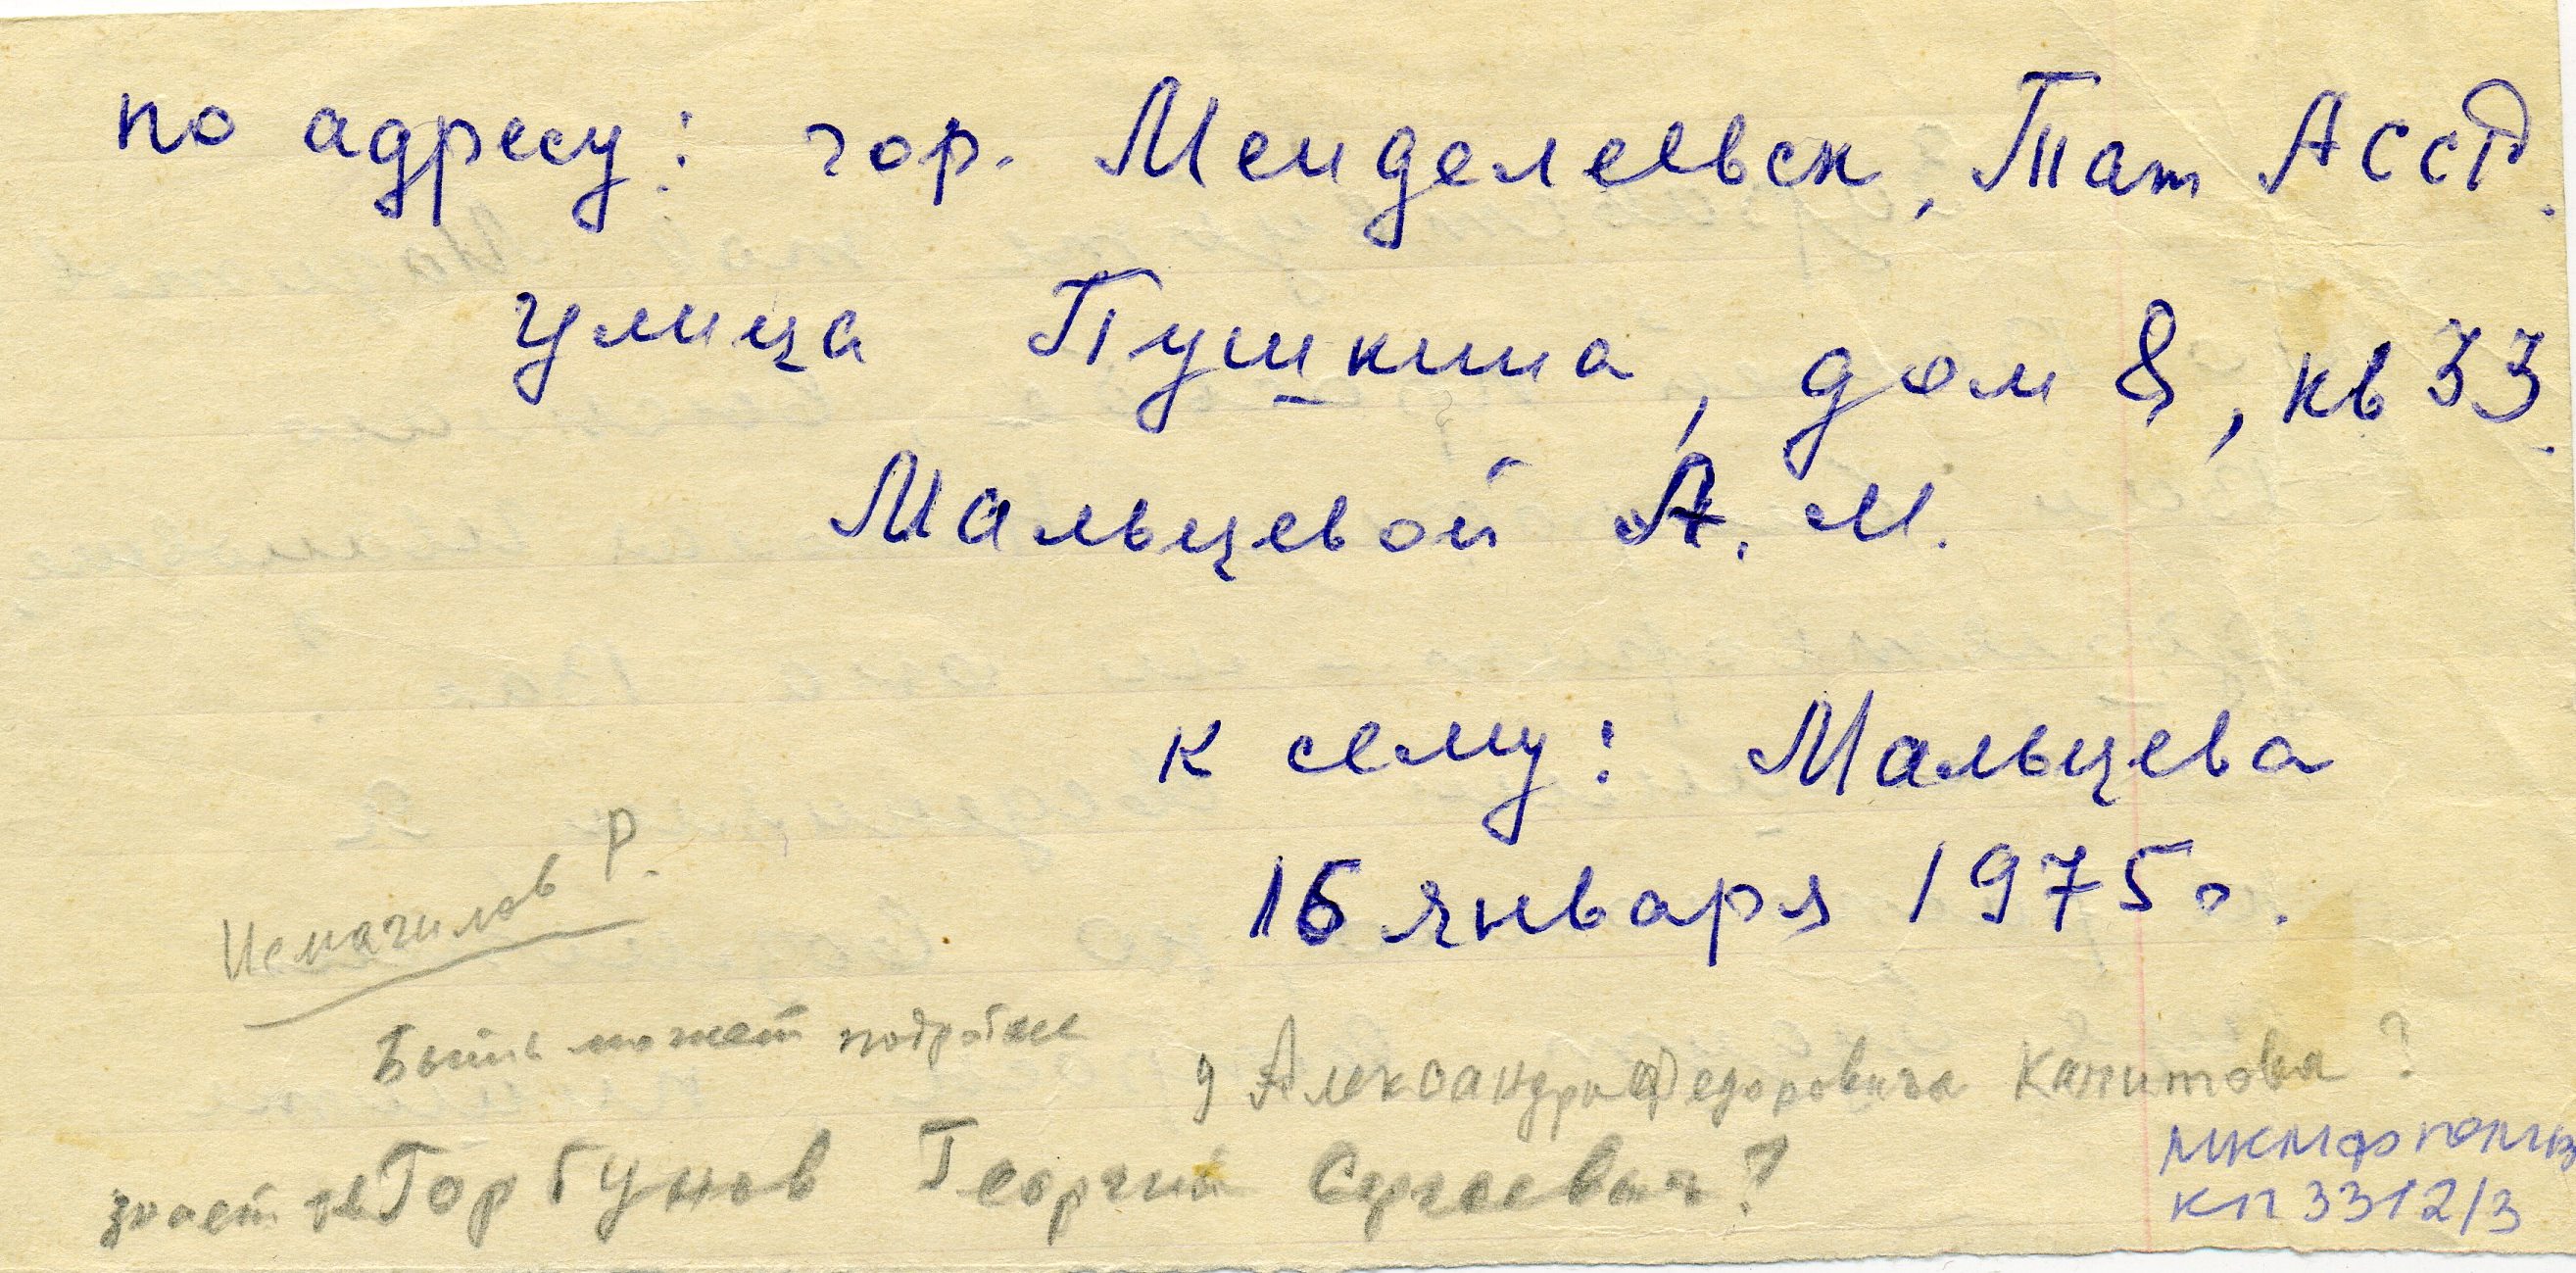 по адресу: гор. Менделеевск, Тат АССР.
улица Пушкина, дом 8, кв 33.
Мальцевой А. М.
к сему: Мальцева
16 января 1975 г.
Исмагилов Р.
Быть может подробнее
у Александра Федоровича Капитова?
знает тов Горбунов Георгий Сергеевич?
КП 3312/3